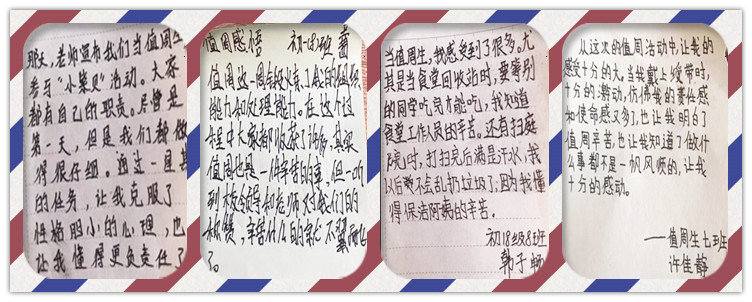 那天,老师宣布我们当值周生
参与“小蜜贝”活动。大家
都有自己的职责。尽管是
第一天,但是我们都做
得很仔细。通过一周
的任务,让我克服了
性格胆小的心理,也
让我懂得要负责任了
值周感悟 初一(8)班
值周这一周锻炼了我的组织
能力和处理能力。在这个过
程中大家都收获了许多,其实
值周生是一件辛苦的事,但一听
到校领导和老师对我们的
称赞,辛苦什么的就
了。
当值周生,我感受到了很多。尤
其是当食堂回收站时,要等别
的同学吃完才能吃,我知道
食堂工作人员的辛苦。还有扫庭
院时,打扫完后满是汗水,我
以后我不会乱扔垃圾了;因为我懂
得保洁阿姨的辛苦。
初18级8班
韩子
从这次的值周活动中,让我的
感受十分的大。当我戴上绶带时,
十分的激动,仿佛我的责任感
和使命感又多了,也让我明白了
值周辛苦,也让我知道了做什
么事都不是一帆风顺的,让我
十分的感动。
——值周生七班
许佳静